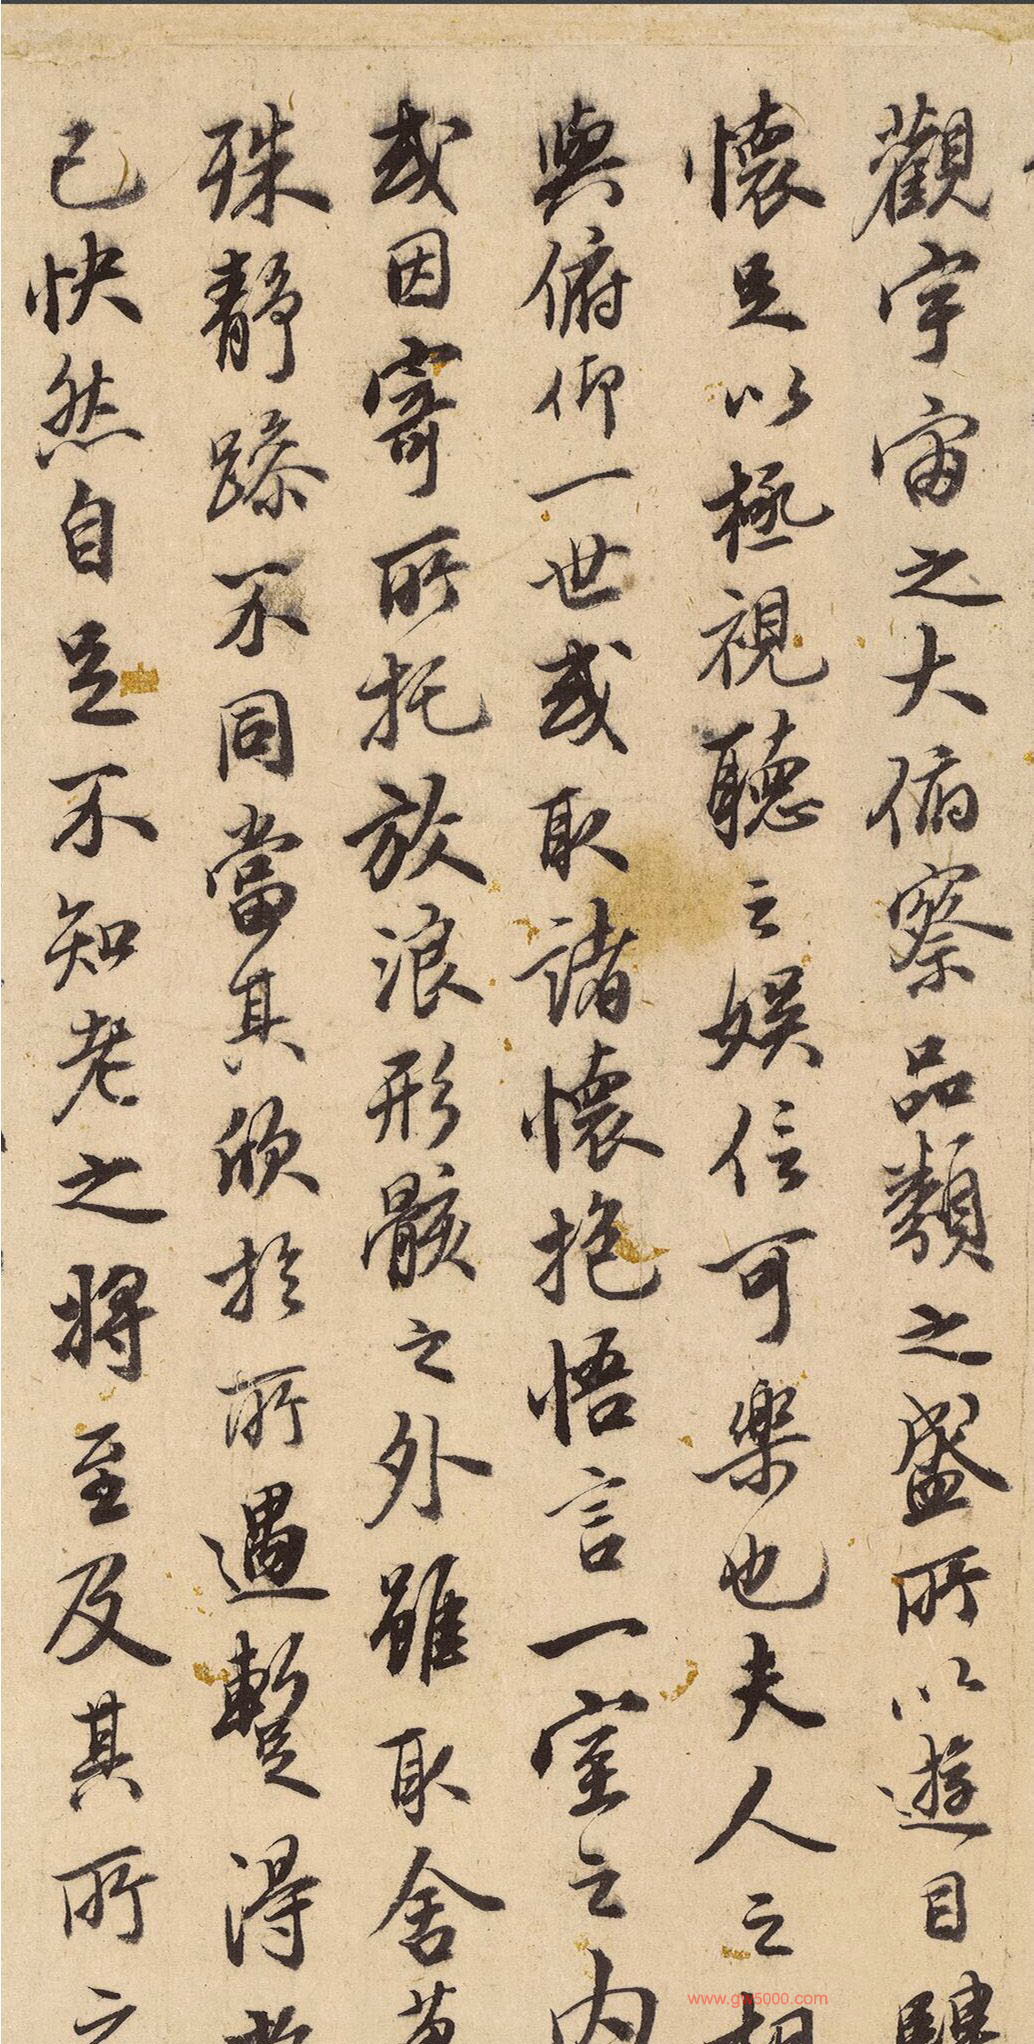 觀宇宙之大俯察品類之盛所以遊目騁
懷足以極視聽之娛信可樂也夫人之相
與俯仰一世或取諸懷抱悟言一室之內
或因寄所托放浪形骸之外雖取舍萬
殊靜躁不同當其欣於所遇暫得
己快然自足不知老之將至及其所之
www.gw5000.com